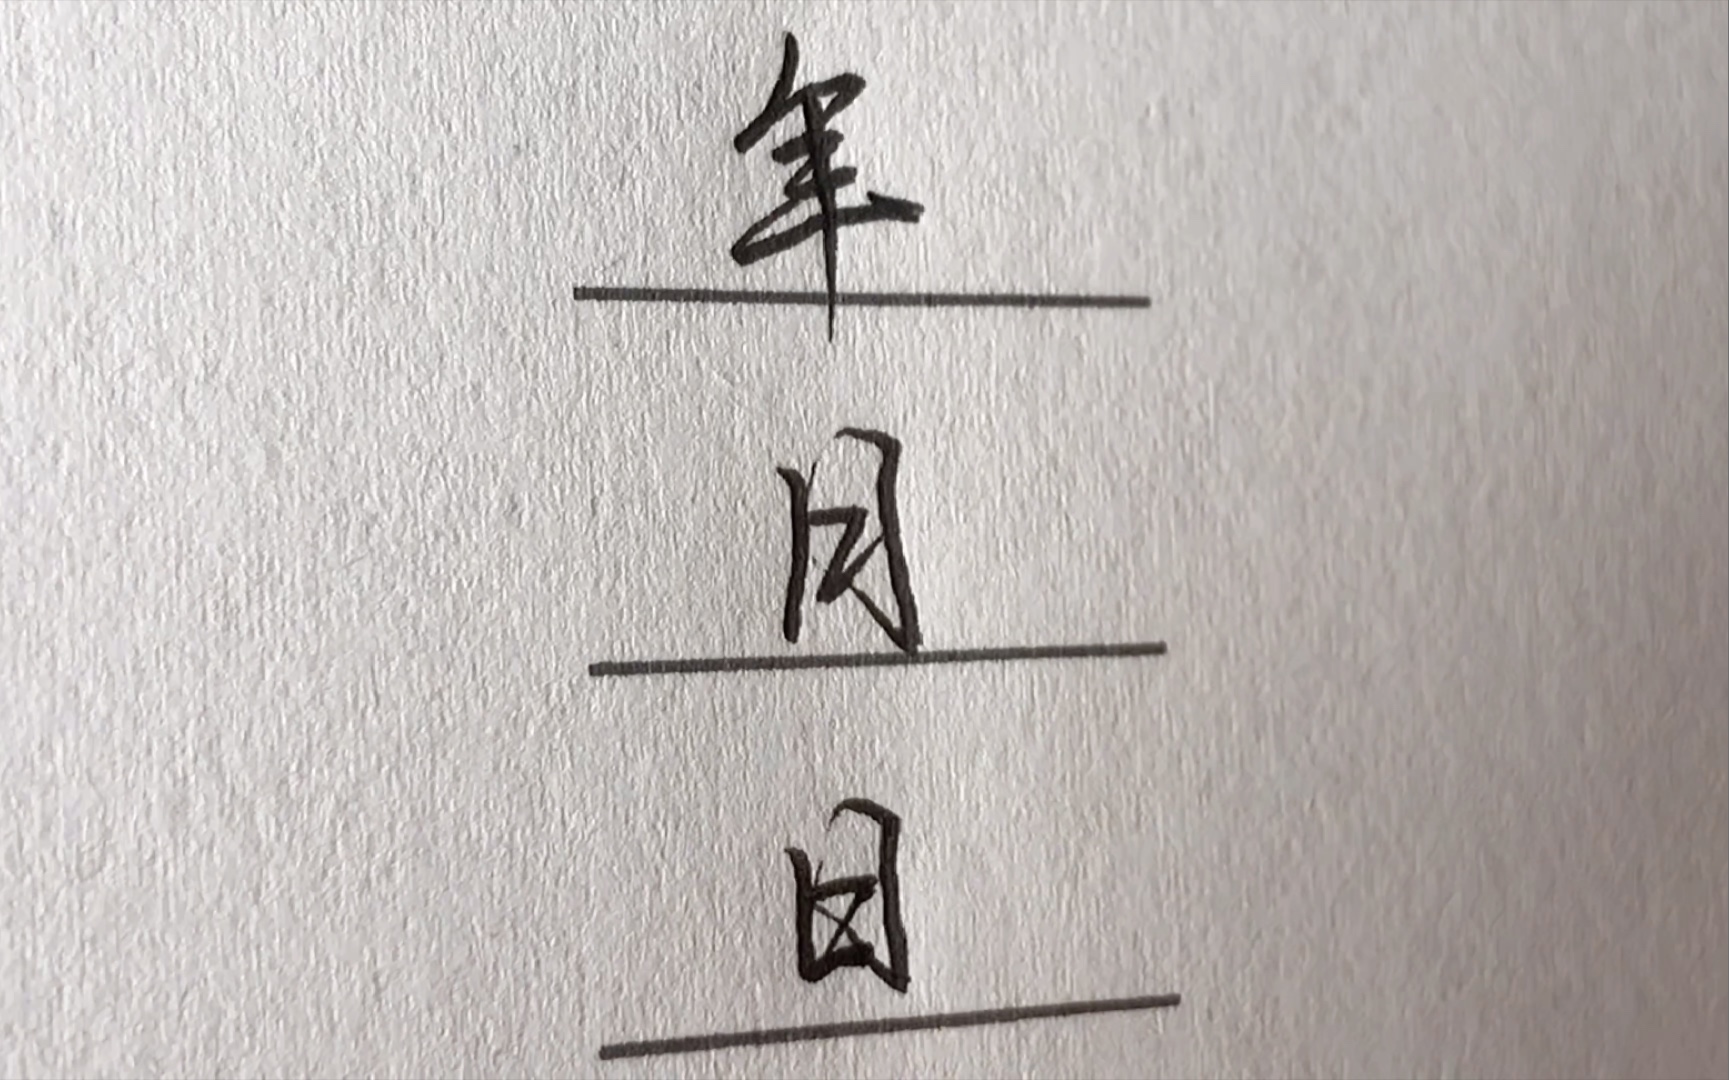 年
月
日